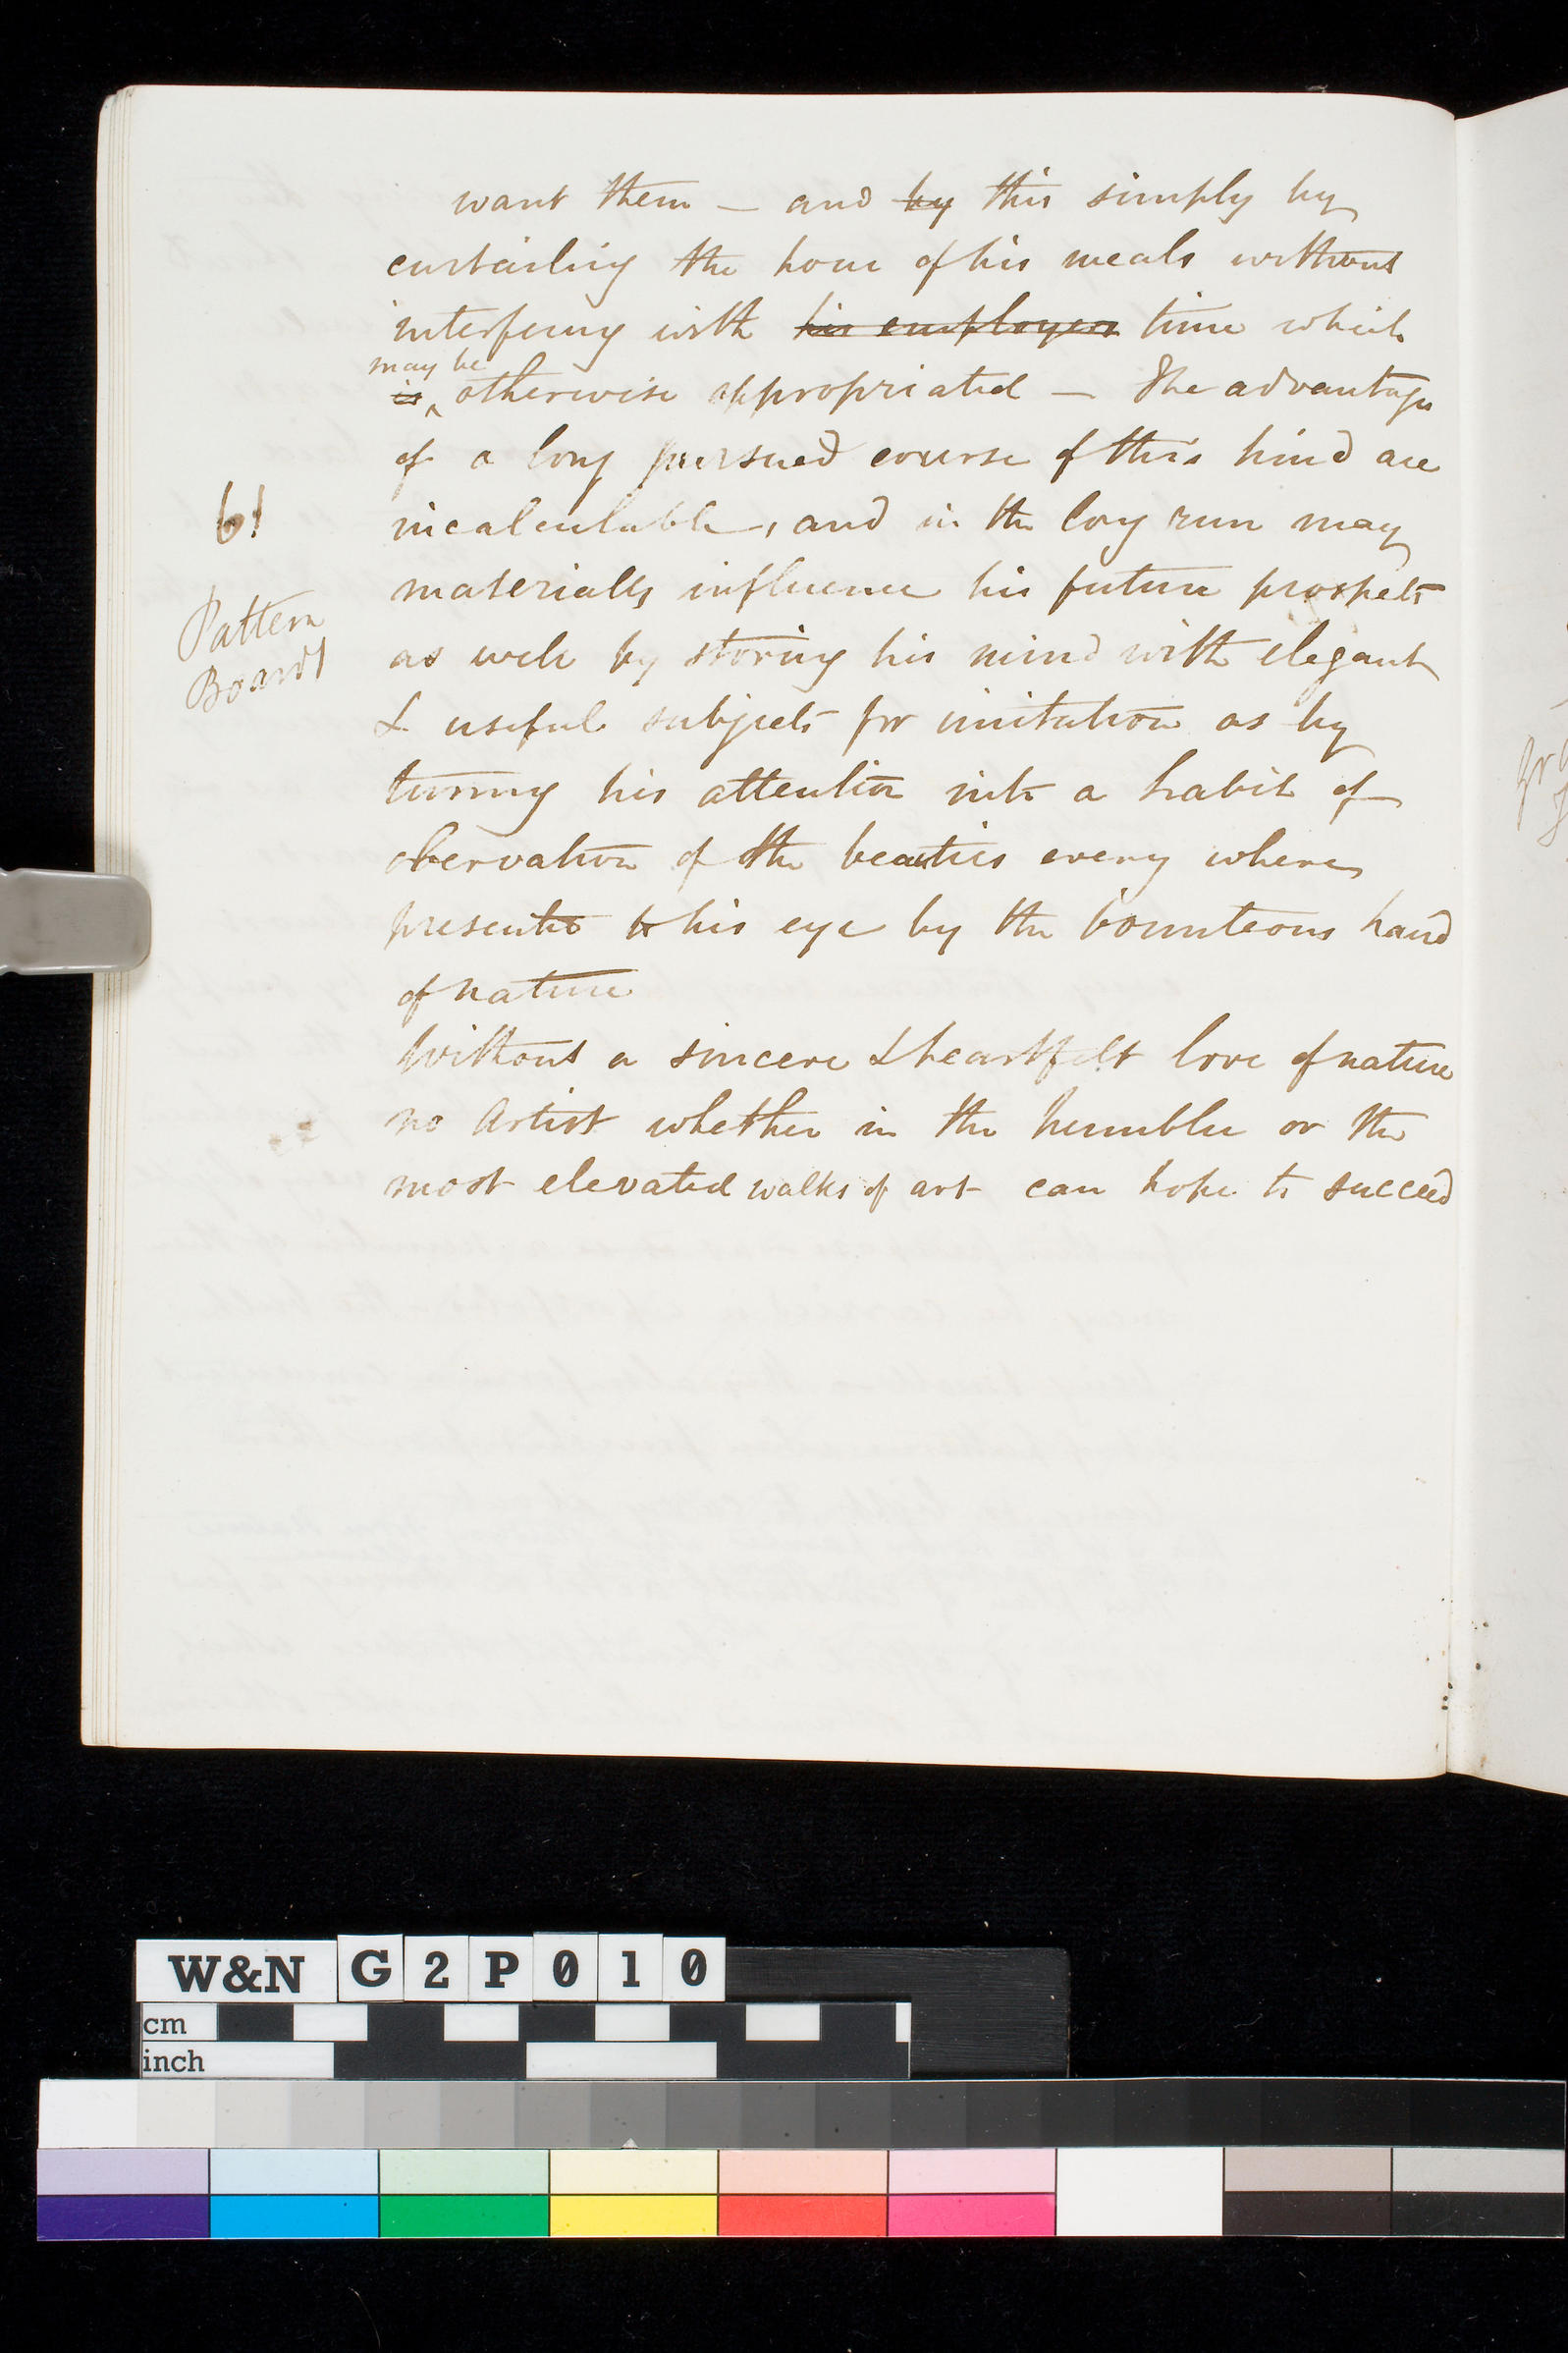 want them — and by this simply by
curtailing the hour of his meals without
interfering with his employers time which
may be
is ‸ otherwise appropriated — The advantages
of a long pursued course of this kind are
incalculable, and in the long run may
materially influence his future prospects
as well by storing his mind with elegant
& useful subjects for imitation as by
turning his attention into a habit of
obervation of the beauties every where
presented to his eye by the bounteous hand
of nature
Without a sincere & heartfelt love of nature
no Artist whether in the humbler or the
most elevated walks of art can hope to succeed
61
Pattern
Boards
W&N G2P010
cm
inch